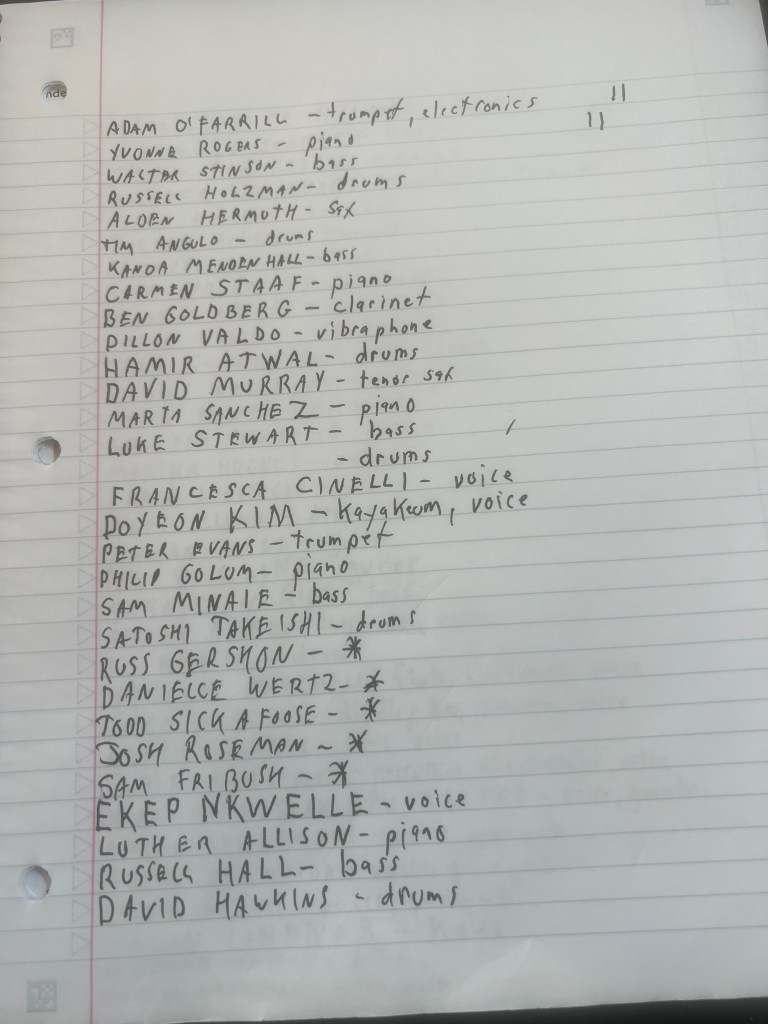 ADAM O'FARRILL - trumpet, electronics 11
YVONNE ROGERS - piano 11
WALTER STINSON - bass
RUSSELL HOLZMAN - drums
ALDEN HERMUTH - sax
TIM ANGULO - drums
KANOA MENDENHALL - bass
CARMEN STAAF - piano
BEN GOLDBERG - clarinet
DILLON VALDO - vibraphone
HAMIR ATWAL - drums
DAVID MURRAY - tenor sax
MARTA SANCHEZ - piano
LUKE STEWART - bass /
- drums
FRANCESCA CINELLI - voice
DOYEON KIM - kayakeum, voice
PETER EVANS - trumpet
PHILIP GOLUM - piano
SAM MINAIE - bass
SATOSHI TAKEISHI - drums
RUSS GERSHON - *
DANIELLE WERTZ - *
TODD SICKAFOOSE - *
JOSH ROSEMAN - *
SAM FRIBUSH - *
EKEP NKWELLE - voice
LUTHER ALLISON - piano
RUSSELL HALL - bass
DAVID HAWKINS - drums